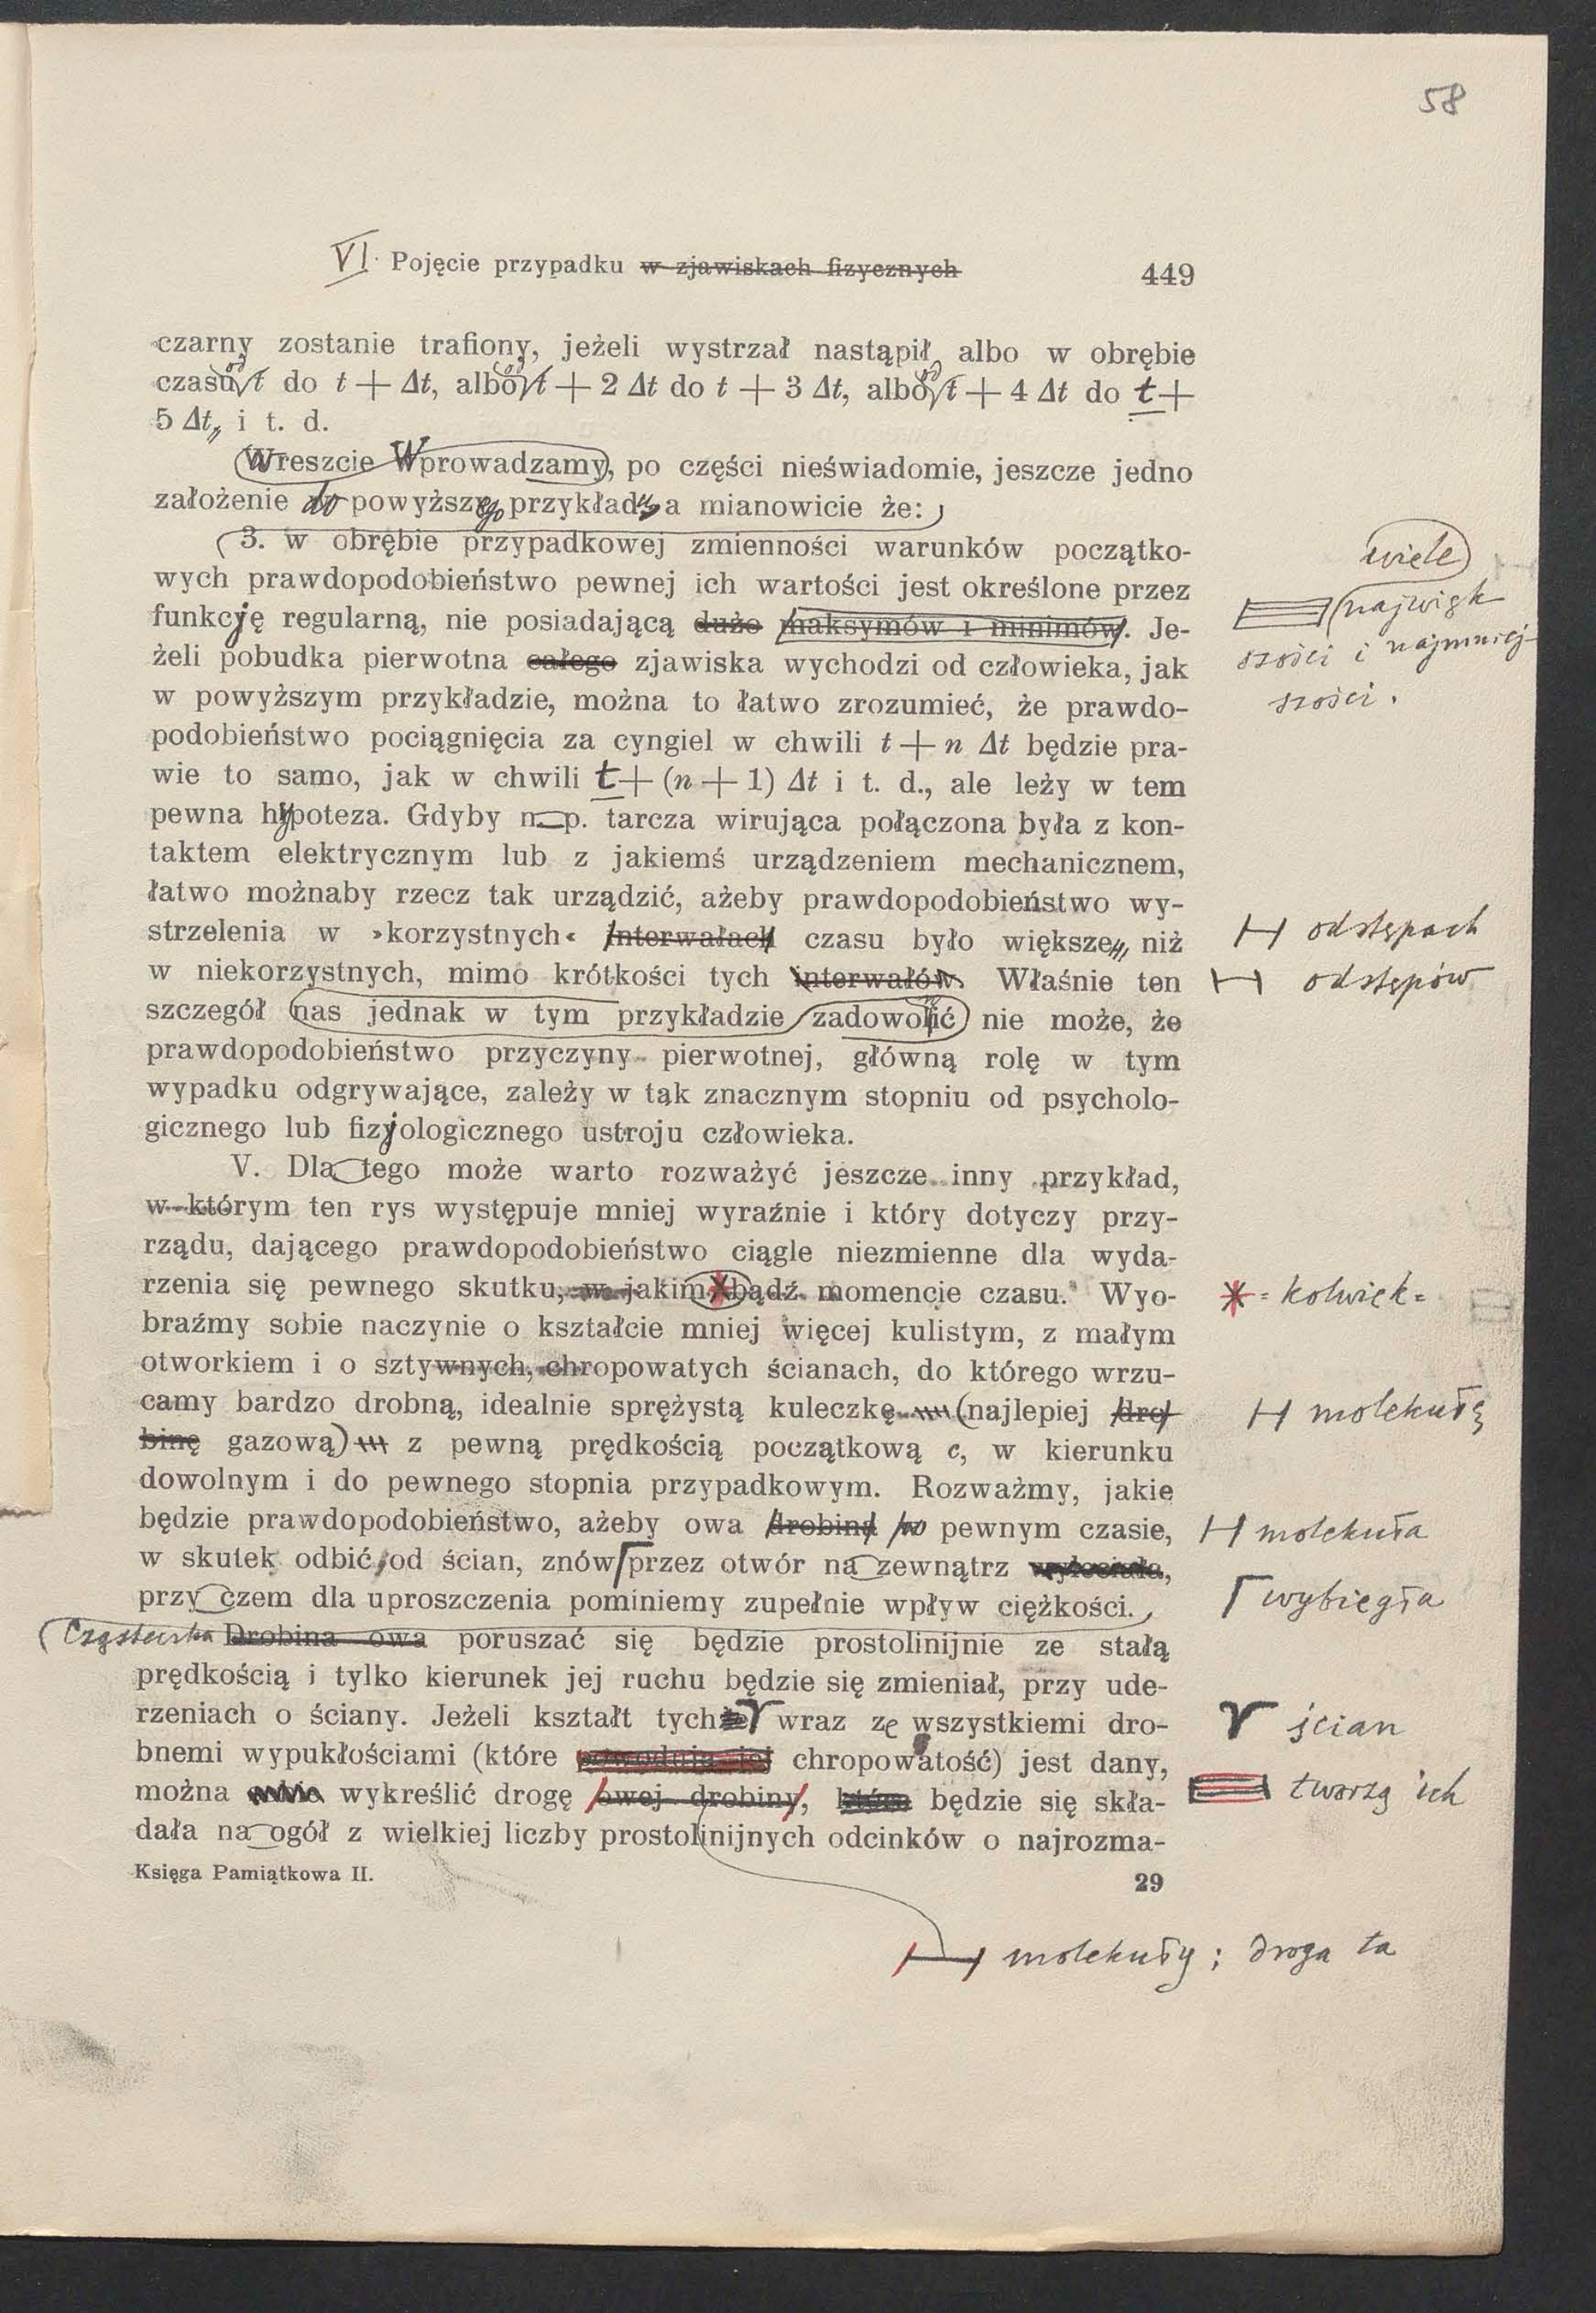 58
VI. Pojęcie przypadku w zjawiskach fizycznych 449
czarny zostanie trafiony, jeżeli wystrzał nastąpił, albo w obrębie
czasu od t do t + Δt, albo od t + 2 Δt do t + 3 Δt, albo od t + 4 Δt do t +
5 Δt, i t. d.
Wreszcie Wprowadzamy, po części nieświadomie, jeszcze jedno
założenie do powyższego przykładu, a mianowicie że:
3. w obrębie przypadkowej zmienności warunków początko-
wych prawdopodobieństwo pewnej ich wartości jest określone przez
wiele
funkcję regularną, nie posiadającą dużo maksymów i minimów. Je-
najwięk
żeli pobudka pierwotna całego zjawiska wychodzi od człowieka, jak
szości i najmniej-
w powyższym przykładzie, można to łatwo zrozumieć, że prawdo-
szości.
podobieństwo pociągnięcia za cyngiel w chwili t + n Δt będzie pra-
wie to samo, jak w chwili t + (n + 1) Δt i t. d., ale leży w tem
pewna hypoteza. Gdyby n. p. tarcza wirująca połączona była z kon-
taktem elektrycznym lub z jakiemś urządzeniem mechanicznem,
łatwo możnaby rzecz tak urządzić, ażeby prawdopodobieństwo wy-
strzelenia w »korzystnych« interwałach czasu było większe, niż
odstępach
w niekorzystnych, mimo krótkości tych interwałów. Właśnie ten
odstępów
szczegół nas jednak w tym przykładzie zadowolić nie może, że
prawdopodobieństwo przyczyny pierwotnej, główną rolę w tym
wypadku odgrywające, zależy w tak znacznym stopniu od psycholo-
gicznego lub fizyologicznego ustroju człowieka.
V. Dla tego może warto rozważyć jeszcze inny przykład,
w którym ten rys występuje mniej wyraźnie i który dotyczy przy-
rządu, dającego prawdopodobieństwo ciągle niezmienne dla wyda-
rzenia się pewnego skutku, w jakim bądź momencie czasu. Wyo-
= kolwiek =
braźmy sobie naczynie o kształcie mniej więcej kulistym, z małym
otworkiem i o sztywnych, chropowatych ścianach, do którego wrzu-
camy bardzo drobną, idealnie sprężystą kuleczkę (najlepiej dro-
molekułę
binę gazową) z pewną prędkością początkową c, w kierunku
dowolnym i do pewnego stopnia przypadkowym. Rozważmy, jakie
będzie prawdopodobieństwo, ażeby owa drobina po pewnym czasie,
molekuła
w skutek odbić od ścian, znów przez otwór na zewnątrz wyleciała,
wybiegła
przy czem dla uproszczenia pominiemy zupełnie wpływ ciężkości.
Cząsteczka Drobina owa poruszać się będzie prostolinijnie ze stałą
prędkością i tylko kierunek jej ruchu będzie się zmieniał, przy ude-
rzeniach o ściany. Jeżeli kształt tychże wraz ze wszystkiemi dro-
ścian
bnemi wypukłościami (które powodują jej chropowatość) jest dany,
tworzą ich
można wykreślić drogę owej drobiny, która będzie się skła-
dała na ogół z wielkiej liczby prostolinijnych odcinków o najrozma-
Księga Pamiątkowa II. 29
molekuły; droga ta